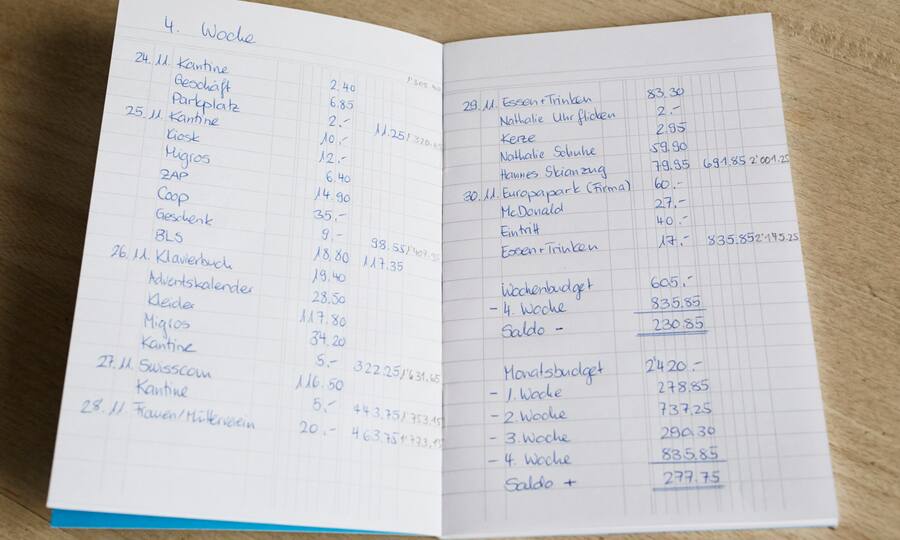 4. Woche
24.11. Kantine 2.40
Geschäft 6.85
Parkplatz 2.- 11.25
25.11. Kantine 10.-
Kiosk 12.-
Migros 6.40
ZAP 14.90
Coop 35.-
Geschenk 9.- 98.55
BLS 18.80 117.35
26.11. Klavierbuch 19.40
Adventskalender 28.50
Kleider 117.80
Migros 34.20
Kantine 5.- 322.25 1'631.65
27.11. Swisscom 116.50
Kantine 5.- 443.75 1'753.15
28.11. Frauen/Mütterverein 20.- 463.75 1'773.15
29.11. Essen+Trinken 83.30
Nathalie Uhr flicken 2.-
Kerze 2.95
Nathalie Schuhe 59.90
Hannes Skianzug 79.95 691.85 2'001.25
30.11. Europapark (Firma) 60.-
McDonald 27.-
Eintritt 40.-
Essen+Trinken 17.- 835.85 2'145.25
Wochenbudget 605.-
- 4. Woche 835.85
Saldo - 230.85
Monatsbudget 2'420.-
- 1. Woche 278.85
- 2. Woche 737.25
- 3. Woche 290.30
- 4. Woche 835.85
Saldo + 277.75